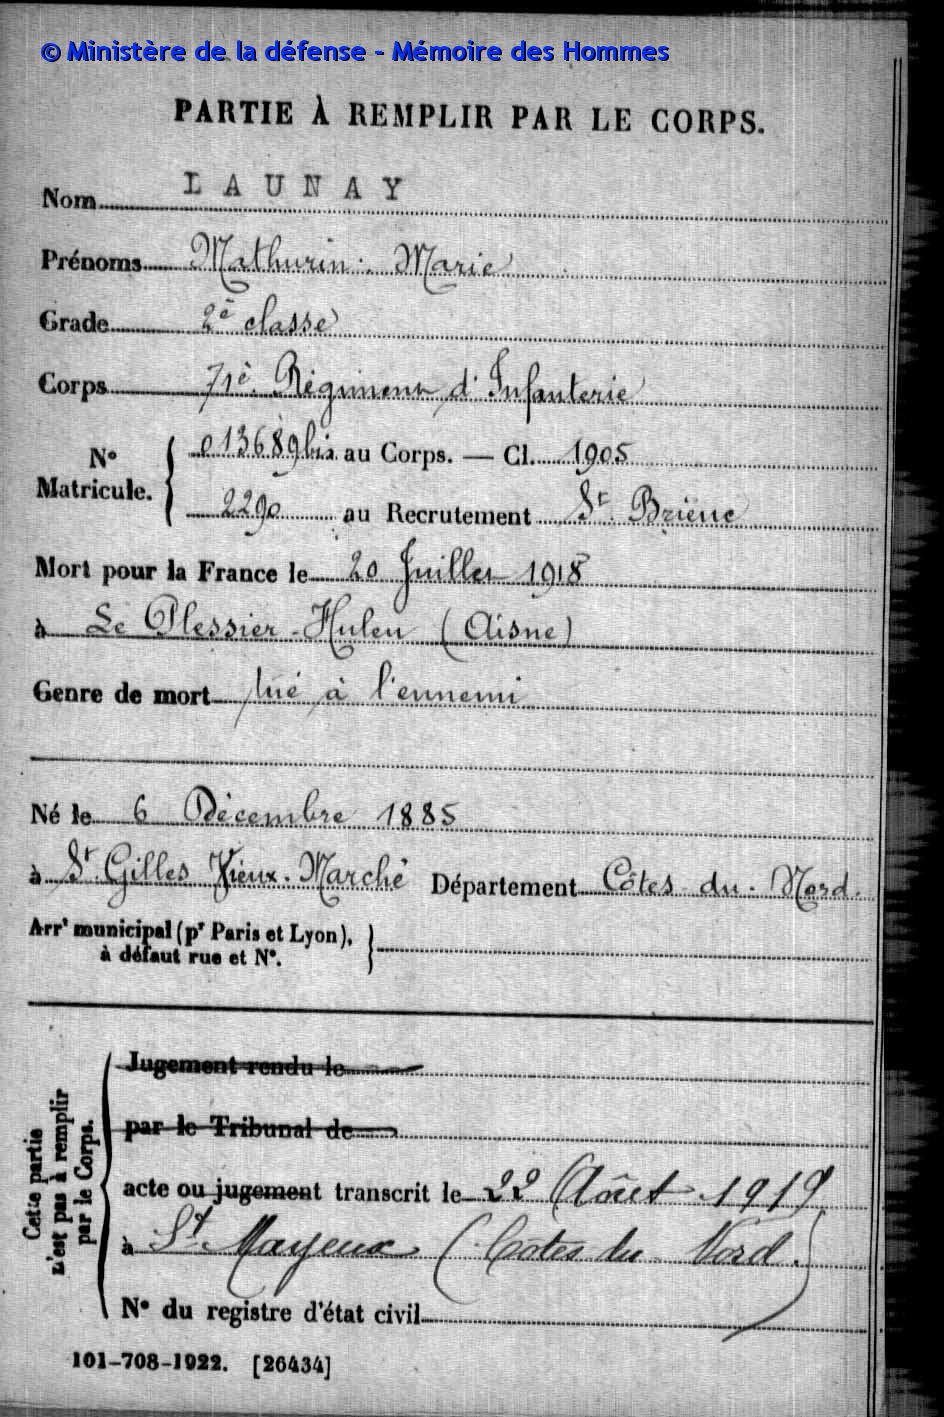 © Ministère de la défense - Mémoire des Hommes
PARTIE À REMPLIR PAR LE CORPS.
Nom LAUNAY
Prénoms Mathurin. Marie
Grade 2e classe
Corps 71e Régiment d'Infanterie
N° Matricule. 013689bis au Corps. — Cl. 1905
2290 au Recrutement St Brieuc
Mort pour la France le 20 Juillet 1918
à Le Plessier-Huleu (Aisne)
Genre de mort tué à l'ennemi
Né le 6 Décembre 1885
à St Gilles Vieux-Marché Département Côtes-du-Nord.
Arrt municipal (pr Paris et Lyon),
à défaut rue et N°.
Cette partie
n'est pas à remplir
par le Corps.
Jugement rendu le
par le Tribunal de
acte ou jugement transcrit le 22 Août 1919
à St Mayeux (Côtes du Nord.)
N° du registre d'état civil
101-708-1922. [26434]